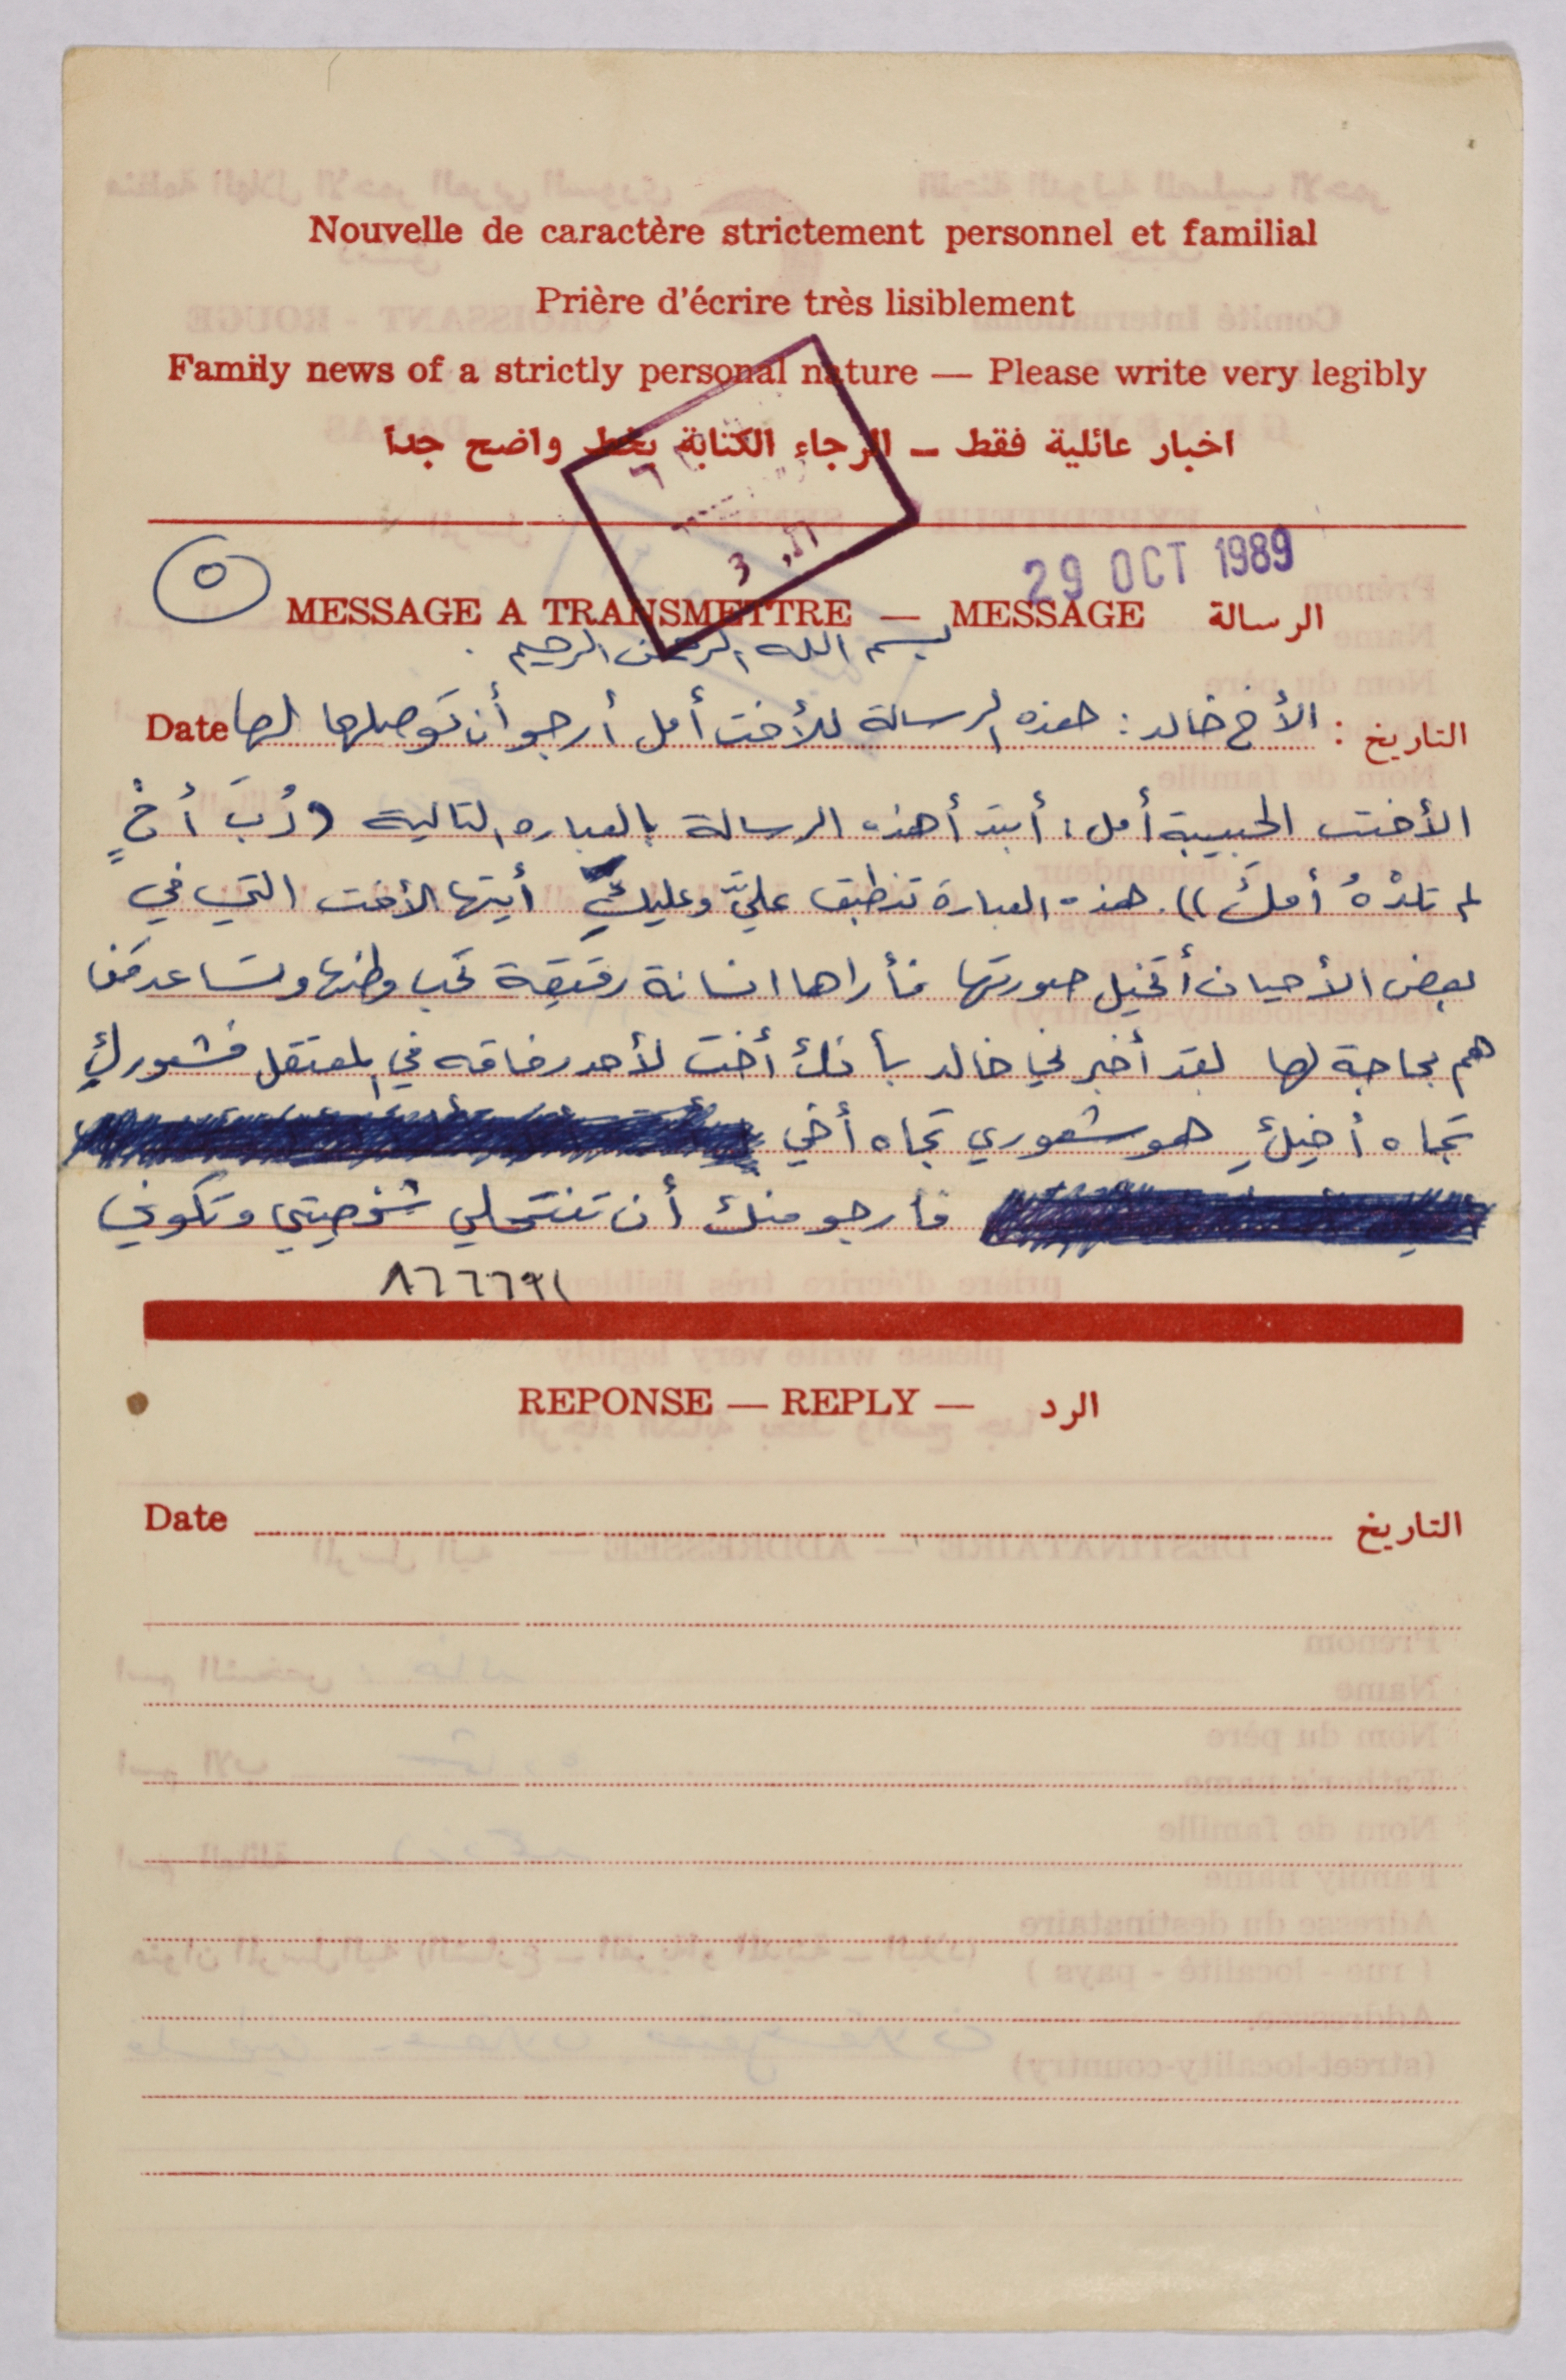 Nouvelle de caractère strictement personnel et familial
Prière d'écrire très lisiblement
Family news of a strictly personal nature — Please write very legibly
اخبار عائلية فقط ـ الرجاء الكتابة بخط واضح جدا
29 OCT 1989
٥
MESSAGE A TRANSMETTRE — MESSAGE الرسالة
بسم الله الرحمن الرحيم
التاريخ : الأخ خالد : هذه الرسالة للأخت أمل أرجو أن توصلها لها Date
الأخت الحبيبة أمل : أبتدأ هذه الرسالة بالعباره التالية (رُبَ أخٍ
لم تلدْهُ أمكَ)). هذه العبارة تنطبق عليَّ وعليكِ أيتها الأخت التي في
بعض الأحيان أتخيل صورتها فأراها انسانة رقيقة تحب وطنها وتساعد من
هم بحاجة لها لقد أخبرني خالد بأنك أخت لأحد رفاقه في المعتقل فشعوركِ
تجاه أخيكِ هو شعوري تجاه أخي
فأرجو منك أن تنتحلي شخصيتي وتكوني
٨٦٦٦٩١
REPONSE — REPLY — الرد
Date التاريخ